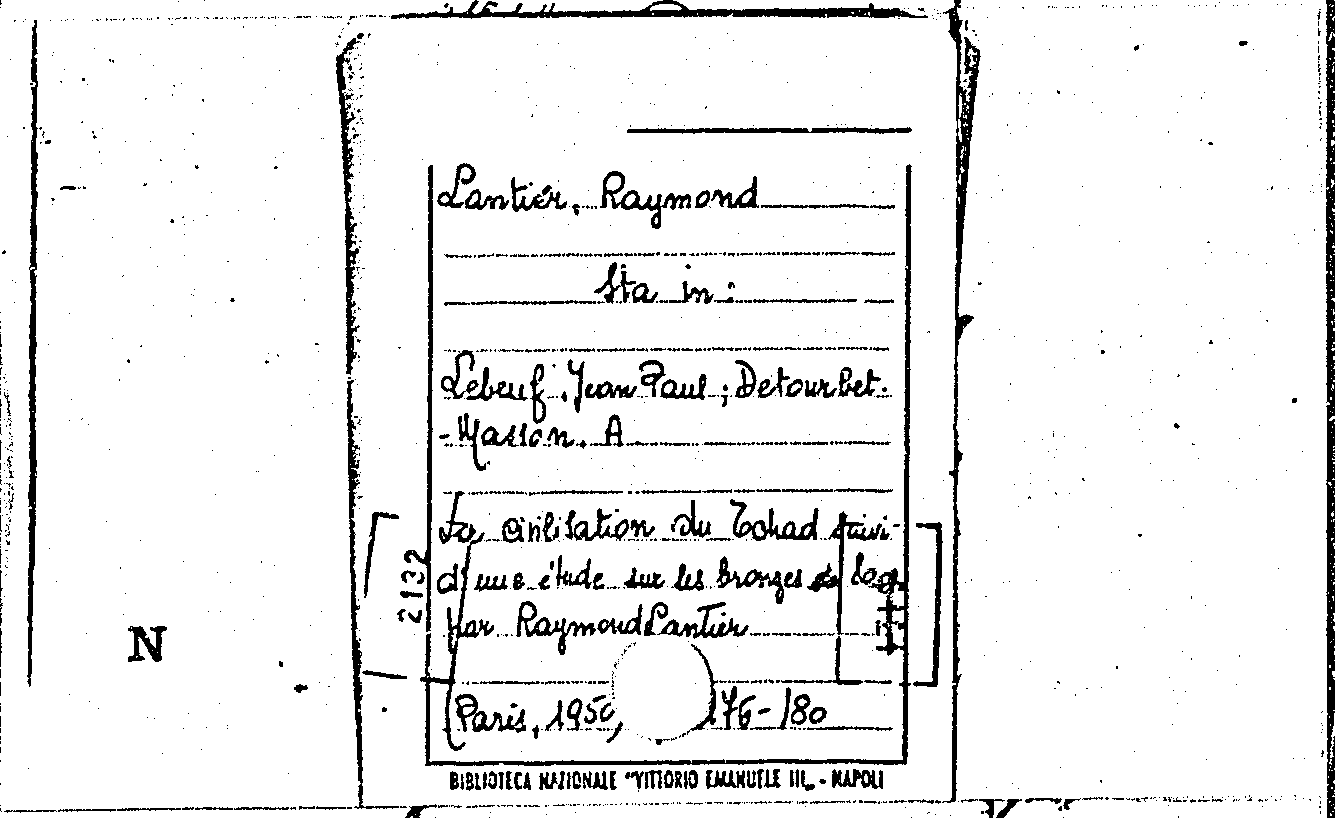 Lantiér, Raymond
Sta in:
Lebeuf, Jean Paul; Detourbet-
-Masson. A
La civilisation du Tchad suivi-
d'une étude sur les bronzes
par Raymond Lantier
2132
N
Paris, 1950, 176-180
BIBLIOTECA NAZIONALE "VITTORIO EMANUELE III„ - NAPOLI